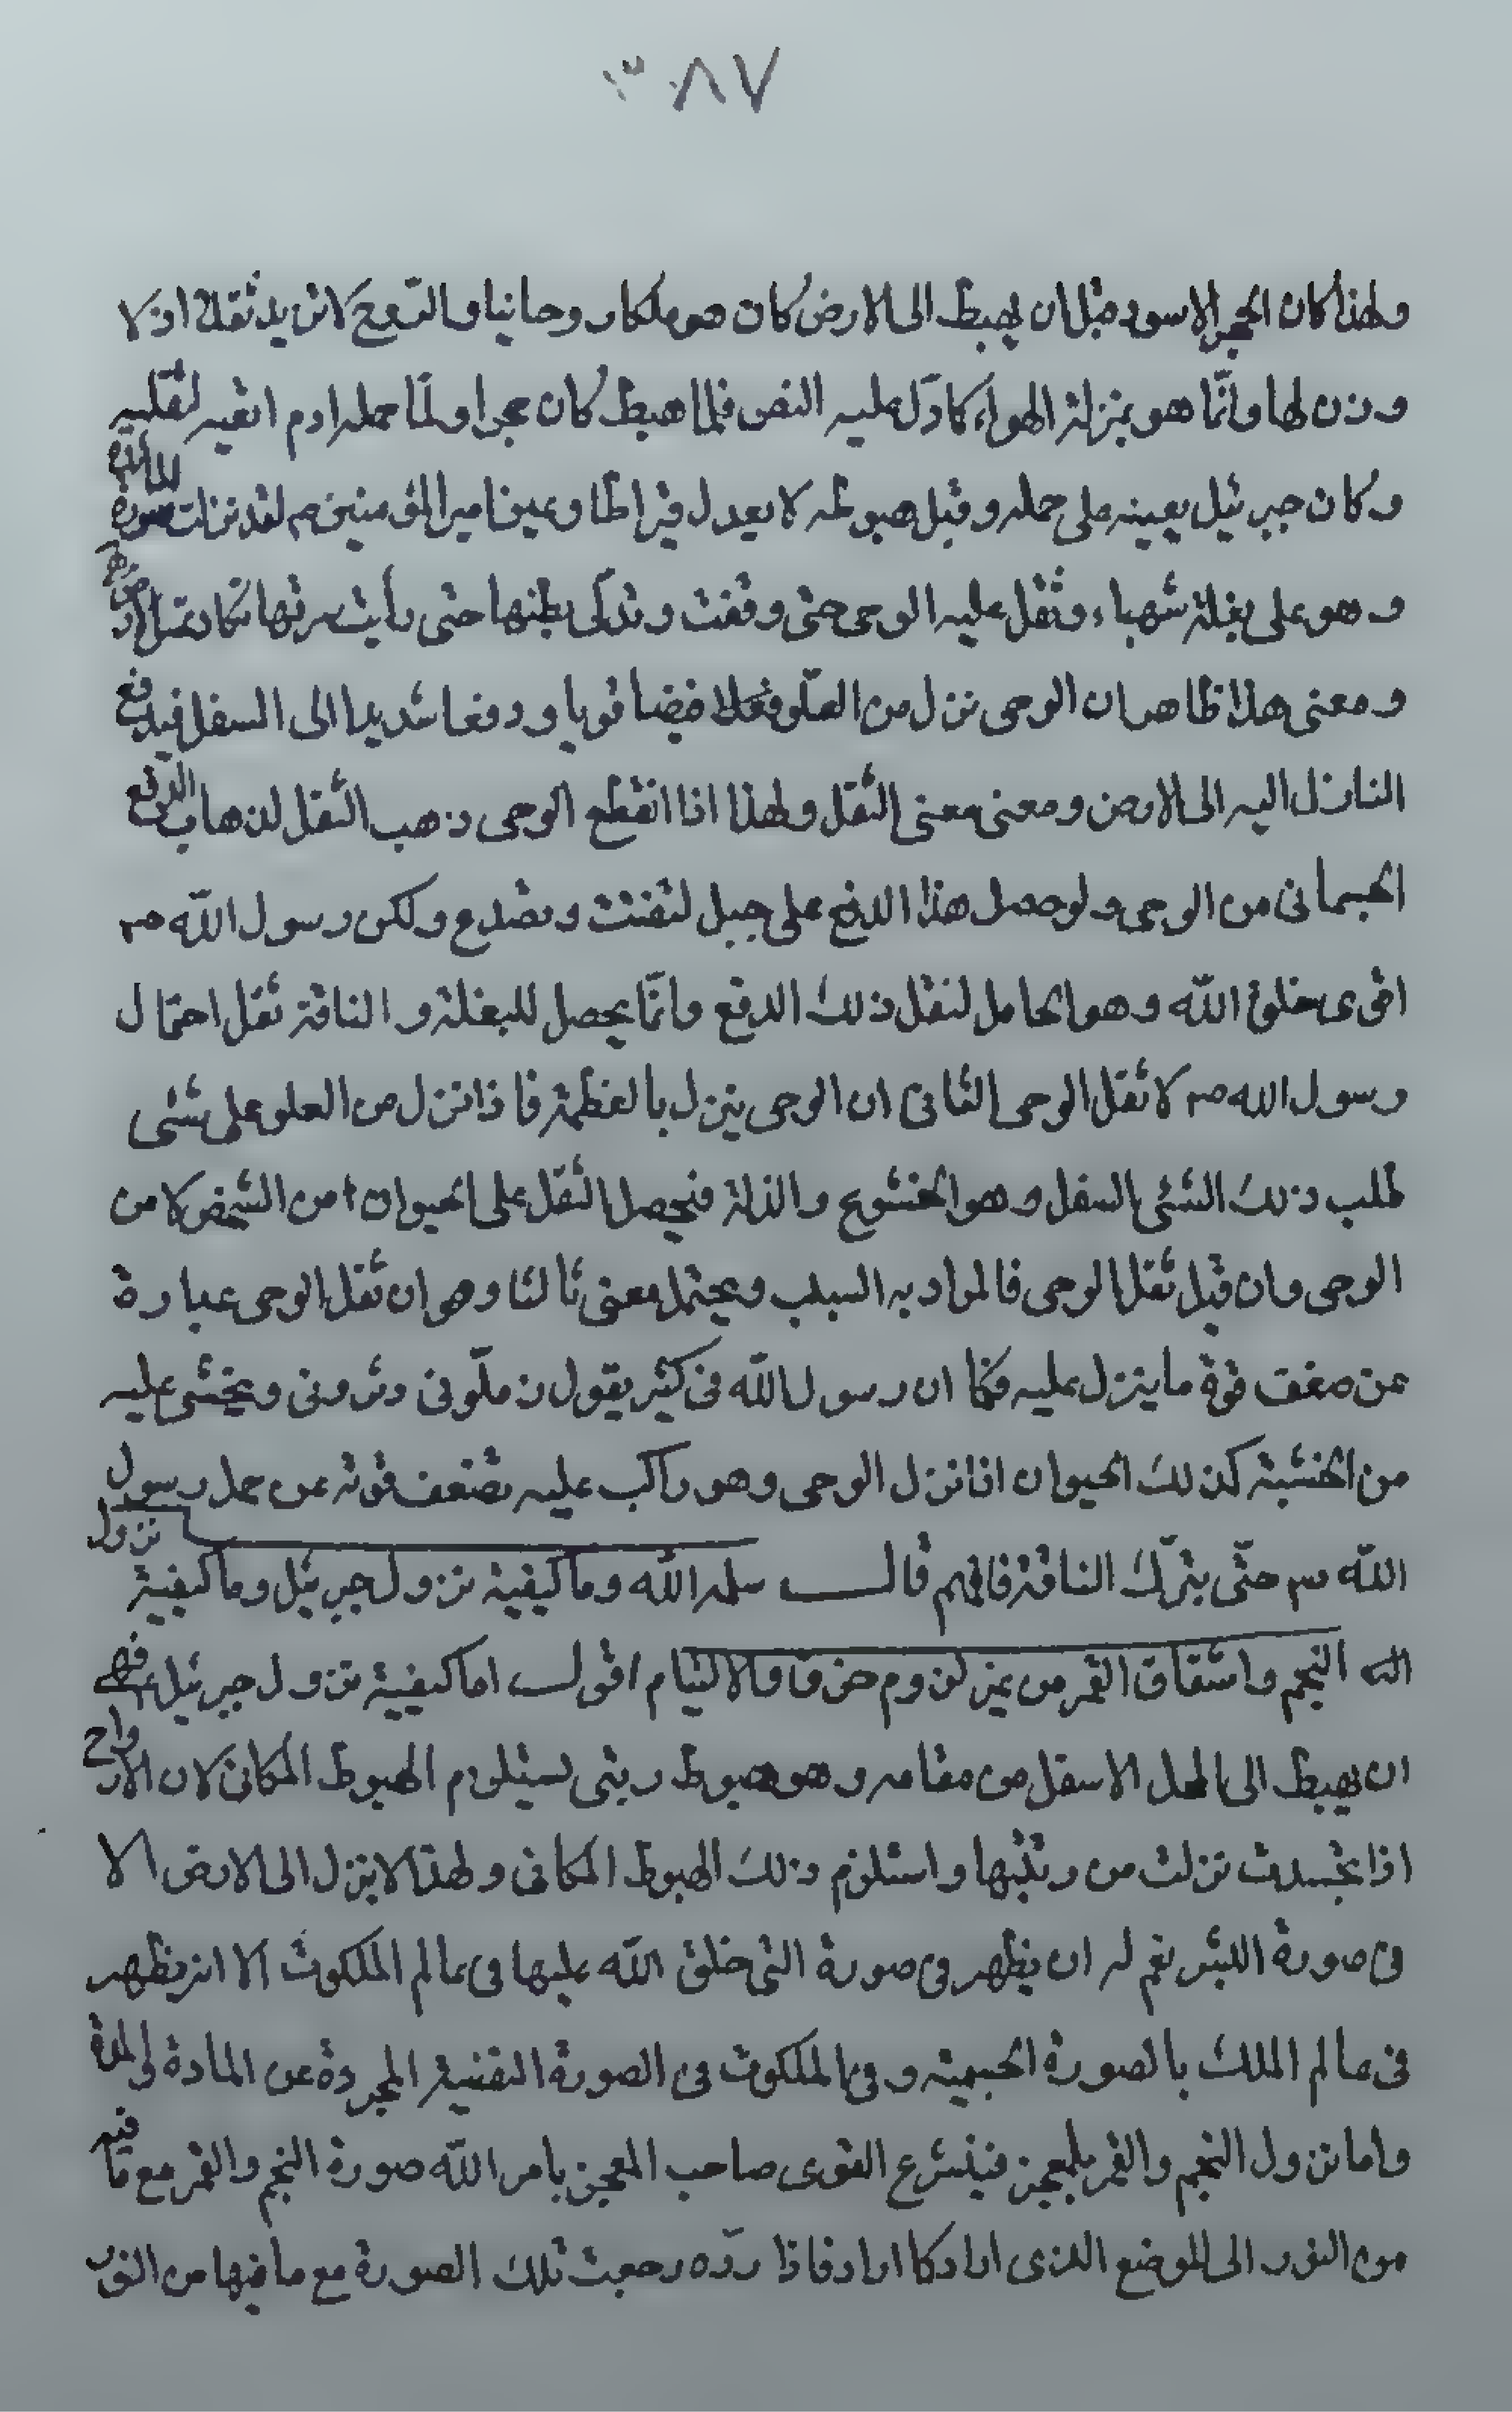 ٣٨٧
ولهذا كان الحجر الاسود قبل ان يهبط الى الارض كان هو ملكا روحانيا والروح لا تزيد ثقلا اذ لا
وزن لها وانّما هو بمنزلة الهواء كما دلّ عليه النص فلما هبط كان حجرا ولمّا حمله ادم اتغير لثقليه
وكان جبرئيل يعينه على حمله وقبل هبوطه لا يعدل قيراطا وعين امير المؤمنين ع لقد نزلت سورة المائدة
وهو على بغلة شهباء وثقل عليه الوحى حتى وقفت وتدلّى بطنها حتى رأيت سرتها تكاد تمسّ الارض
ومعنى هذا ظاهر ان الوحى نزل من العلو فعلا قضيا قويا ودفعا شديدا الى السفل فيدفع
النازل اليه الى الارض ومعنى معنى الثقل ولهذا اذا انقطع الوحى ذهب الثقل لذهاب الدفع
الجسمانى من الوحى ولو حصل هذا الدفع على جبل لتفتت وتصدع ولكن رسول اللّه ص
اقوى خلق اللّه وهو الحامل لثقل ذلك الدفع وانّما يحصل للبغلة والناقة ثقل احتمال
رسول الله ص لا ثقل الوحى الثانى ان الوحى ينزل بالعظمة فاذا نزل من العلو على شئى
طلب ذلك الشئى السفل وهو الخشوع والذلة فيحصل الثقل على الحيوان من الشخص لا من
الوحى وان قيل ثقل الوحى فالمراد به السبب ويحتمل معنى ثالثا وهو ان ثقل الوحى عبارة
عن ضعف قوة ما ينزل عليه فكما ان رسول اللّه فى كثير يقول زملّونى دثرونى ويغشى عليه
من الخشية كذلك الحيوان اذا نزل الوحى وهو راكب عليه تضعف قوته عن حمل رسول
اللّه ص حتّى يترك الناقة فافهم قال سلمه اللّه وما كيفية نزول جبرئيل وما كيفية نزول
النجم وانشقاق القمر من غير لزوم خرق والالتيام اقول اما كيفية نزول جبرئيل ع فهى
ان يهبط الى المحل الاسفل من مقامه وهو هبوط رتبى يستلزم الهبوط المكانى لان الارواح
اذا تجسدت نزلت من رتبتها واستلزم ذلك الهبوط المكانى ولهذا لا ينزل الى الارض الا
فى صورة البشر نعم له ان يظهر فى صورة التى خلق اللّه عليها فى عالم الملكوت الا انه يظهر
فى عالم الملك بالصورة الجسمية وفى الملكوت فى الصورة النفسية المجردة عن المادة والمدة
واما نزول النجم والقمر بالمعجز فينتزع القوى صاحب المعجز بامر اللّه صورة النجم والقمر مع ما فيه
من النور الى الموضع الذى اراد كما اراد فاذا ردّه رجعت تلك الصورة مع ما فيها من النور